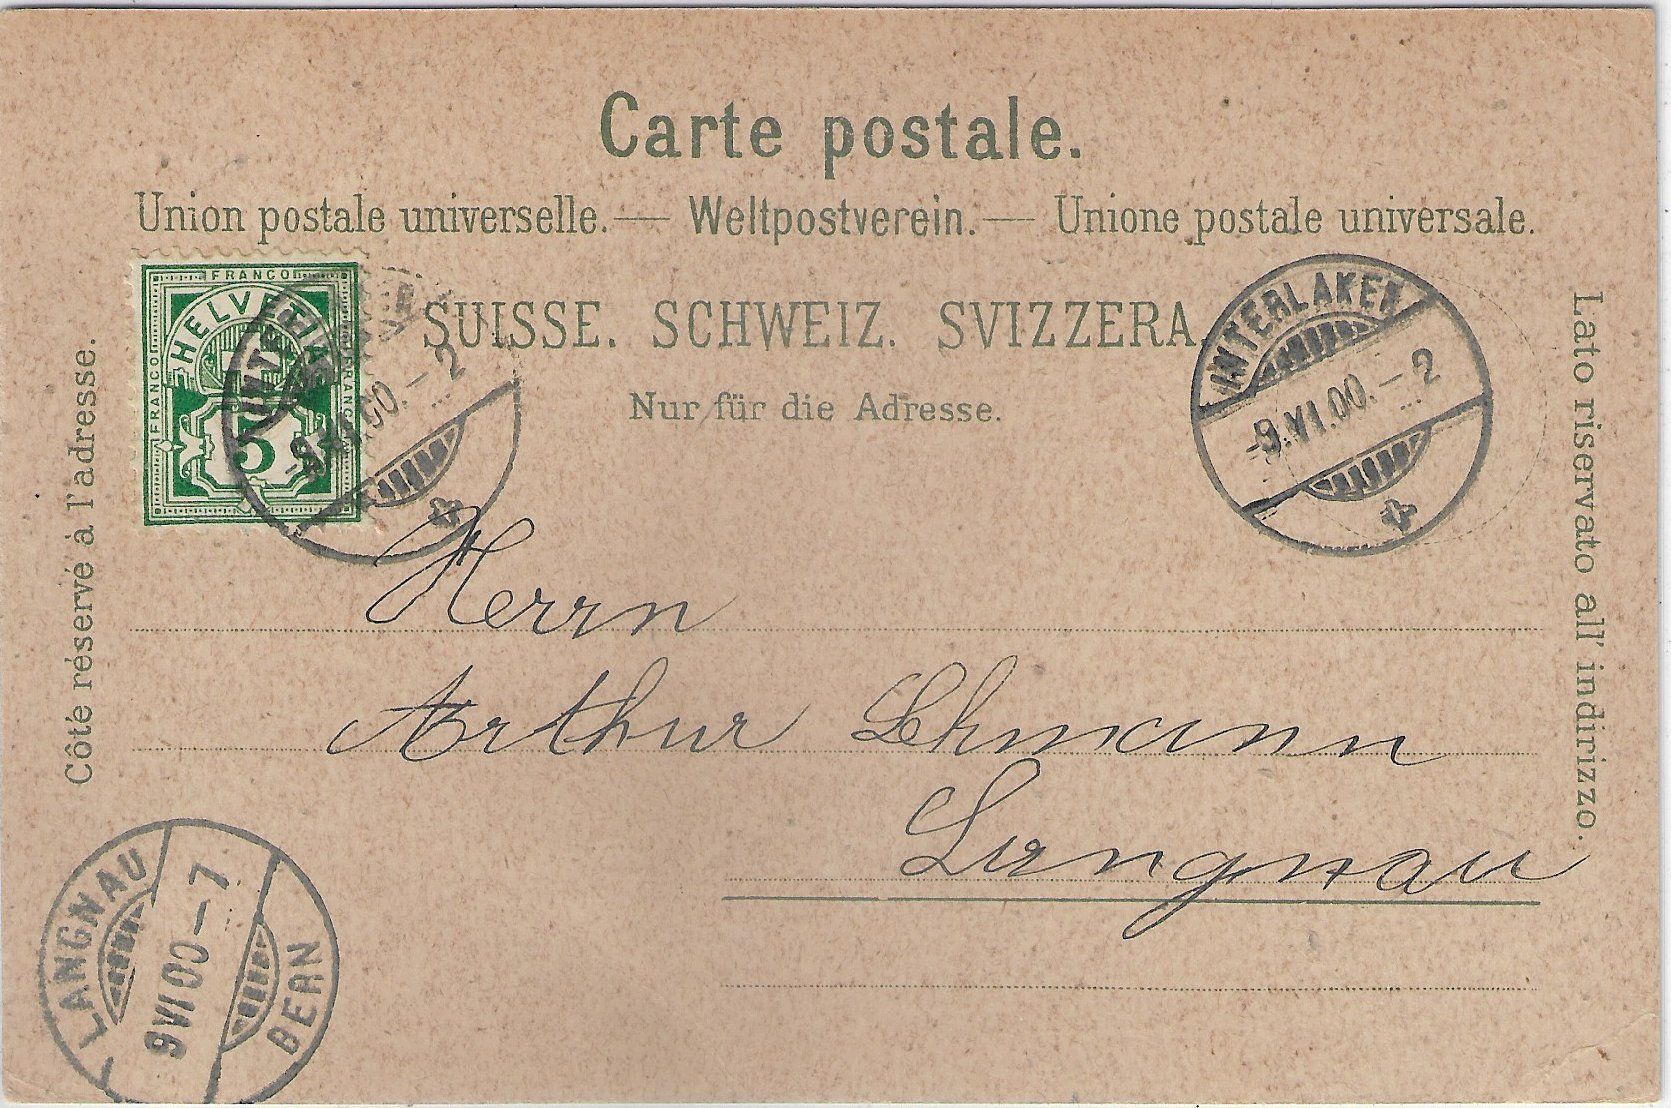 Carte postale.
Union postale universelle. — Weltpostverein. — Unione postale universale.
SUISSE. SCHWEIZ. SVIZZERA.
Nur für die Adresse.
Côté réservé à l'adresse.
Lato riservato all' indirizzo.
FRANCO
HELVETIA
FRANCO
FRANCO
5
INTERLAKEN
-9.VI.00.-2
INTERLAKEN
-9.VI.00.-2
Herrn
Arthur Lehmann
Langnau
LANGNAU
9 VI 00-7
BERN